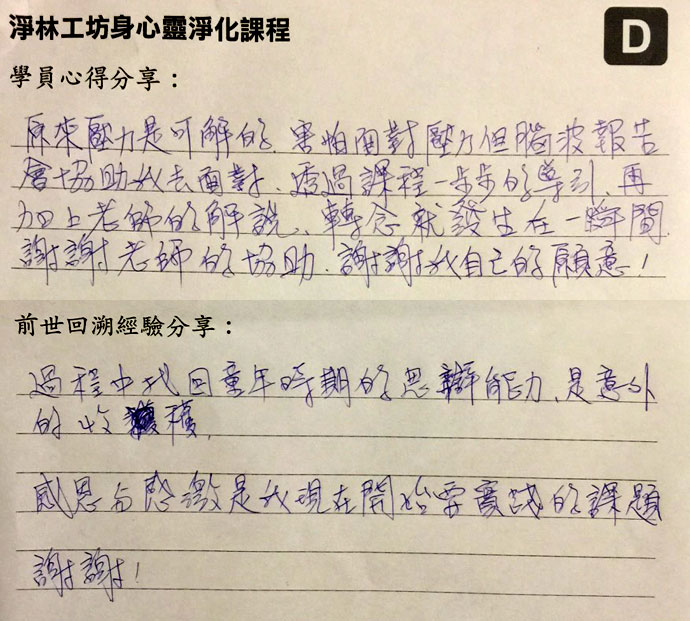 淨林工坊身心靈淨化課程
D
學員心得分享：
原來壓力是可解的.害怕面對壓力但腦波報告
會協助我去面對.透過課程一步步的導引.再
加上老師的解說,轉念就發生在一瞬間.
謝謝老師的協助.謝謝我自己的願意!
前世回溯經驗分享：
過程中找回童年時期的思辯能力.是意外
的收穫.
感恩与感激是我現在開始要實踐的課題
謝謝!